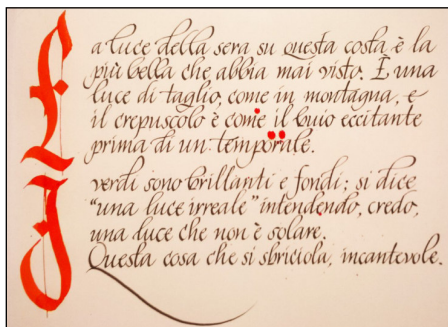 La luce della sera su questa costa è la
più bella che abbia mai visto. È una
luce di taglio, come in montagna, e
il crepuscolo è come il buio eccitante
prima di un temporale.
I verdi sono brillanti e fondi; si dice
"una luce irreale" intendendo, credo,
una luce che non è solare.
Questa cosa che si sbriciola, incantevole.